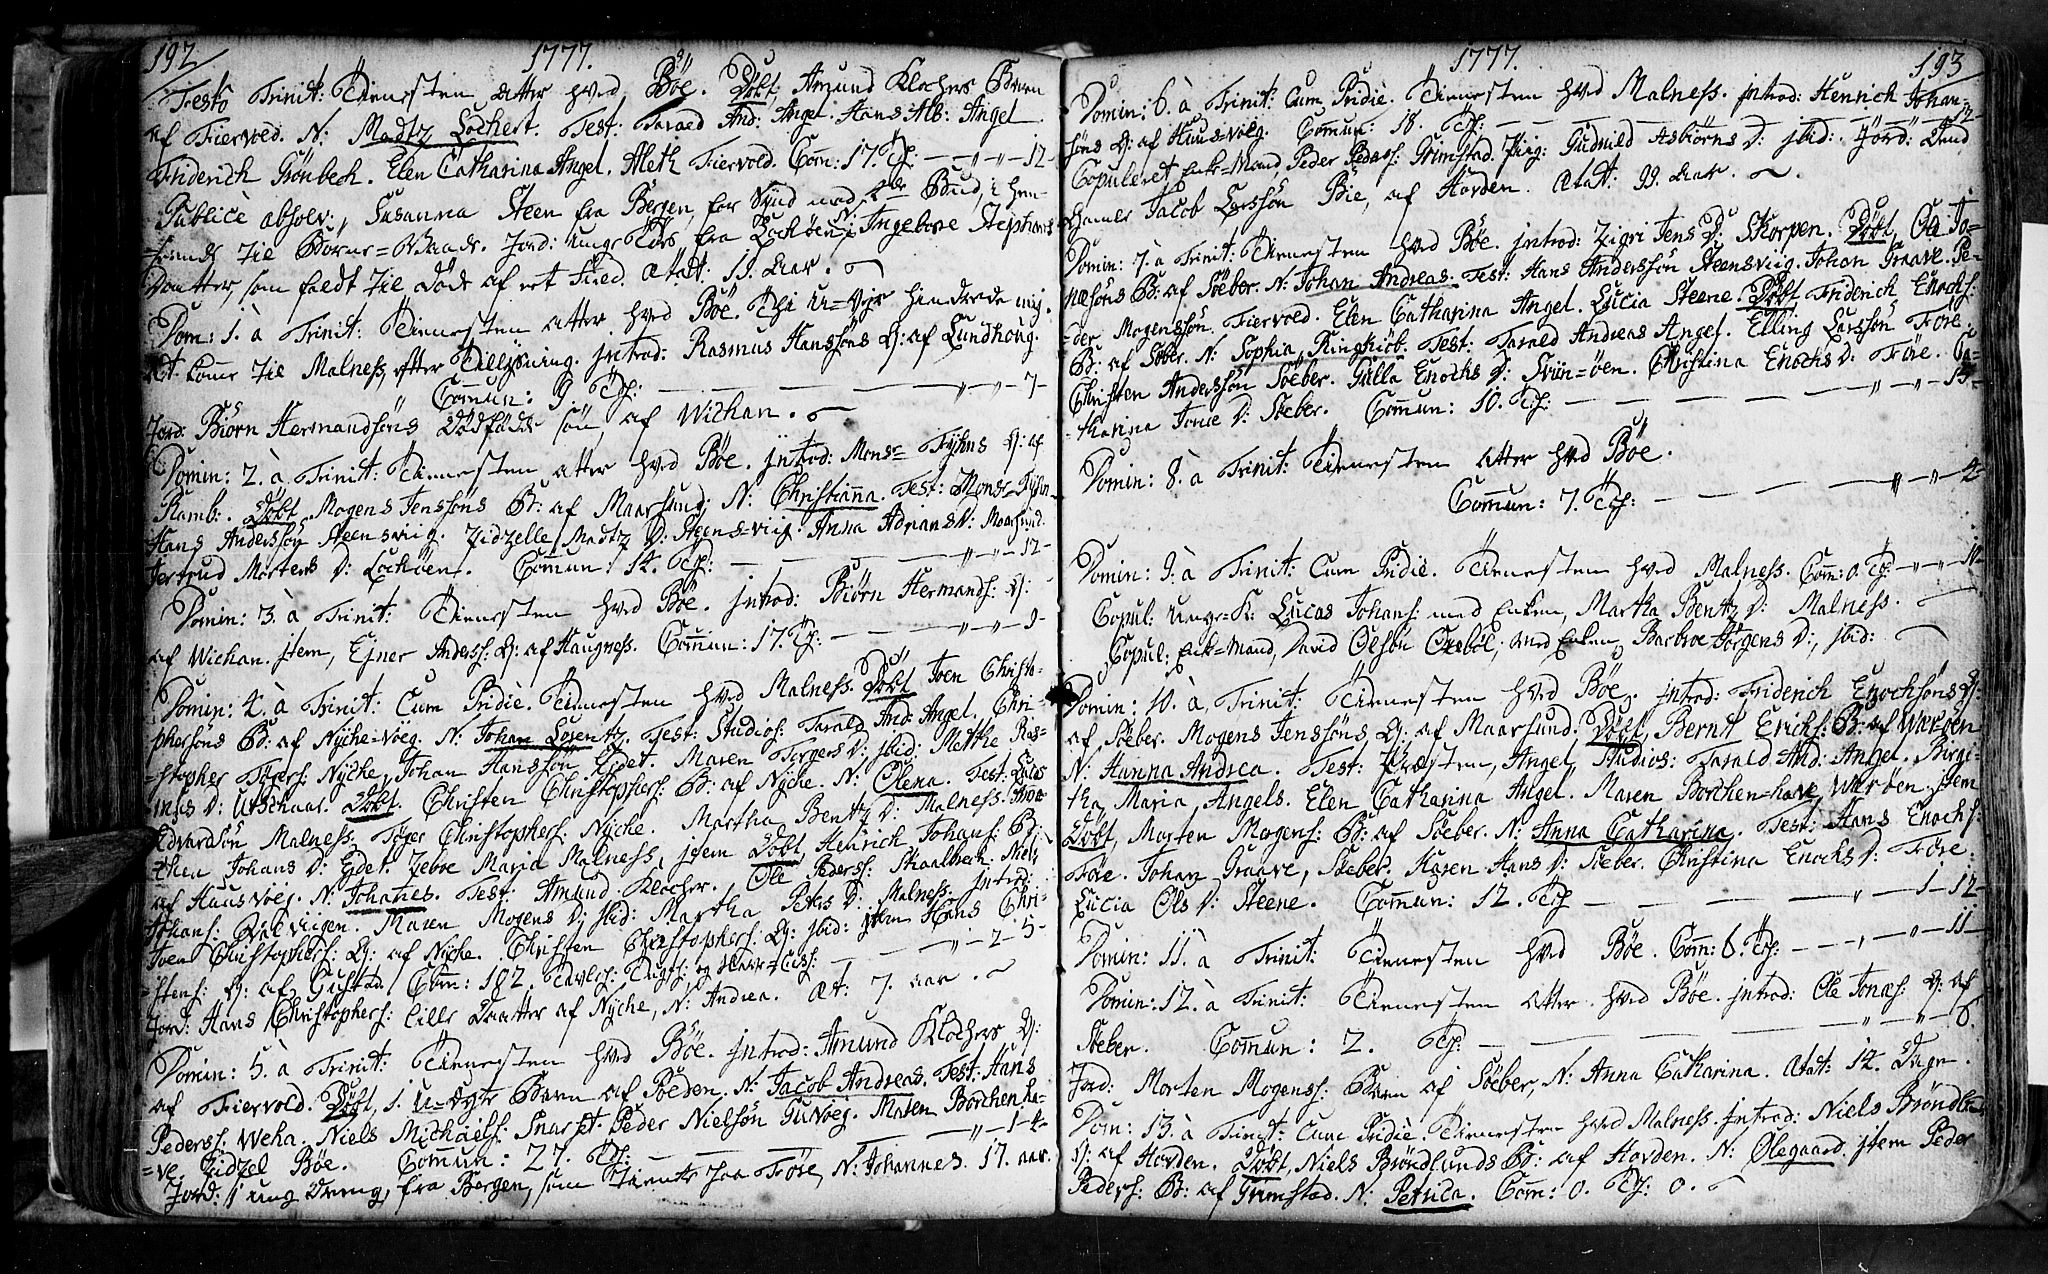 192
1777.
Festo Trinit: Tienesten atter hved Böe. Döbt Amund Klochers Barn
af Fiervold. N: Madtz Lochert. Test: Tarald And: Angel. Hans Alb: Angel.
Friderich Grönbech. Elen Catharina Angel. Aleth Fiervold. Com: 17. Tf: — „ — „ — 12 —
Publicè absolv: Susanna Steen fra Bergen for Synd mod Bud, i hen-
Jord: unge fra Lochöen N: Ingebore Stephans
Daatter, som faldt til Döde af et Field. Ætat: 11. Aar.
Dom: 1. à Trinit: Tienesten atter hved Böe. Thi hinderede mig.
at komme til Malness, efter Tillysning. Introd: Rasmus Hanssöns Q: af Lundhoug.
Comun: 9. Tf: — „ — „ — 7 —
Jord: Biörn Hermandsöns Dödfödde sön af Wichan.
Domin: 2. à Trinit: Tienesten atter hved Böe. Introd: Mons= Fyhns Q: af
Ramb:. Döbt Mogens Jenssöns B: af Maarsund, N: Christianna. Test: Mons= Fyhn
Hans Anderssön Steensviig. Zidzelle Madtz D: Steens=viig: Anna Adrians D: Maarsund.
Giertrud Mortens D: Lochöen. Comun: 14. Tf: — „ — „ — 12 —
Domin: 3. à Trinit: Tienesten hved Böe. Introd: Biörn Hermands: Q:
af Wichan. Item, Ejner Anderss: Q: af Haugness. Comun: 17. Tf: — „ — „ — 9 —
Domin: 4. à Trinit: Cum Pridiè. Tienesten hved Malness. Döbt Joen Christo-
phersöns B: af Nyche=Voeg. N: Johan Lorentz. Test: Studios: Tarald And: Angel. Chri-
=stopher Nyche, Johan Hanssön Eidet. Maren Torgers D: ibid: Mette Ras-
mus D: Utschaar. Döbt Christen Christophers: B: af Nyche. N: Elena. Test: Lucas
Edvardsön Malness. Christophers: Nyche. Martha Bentz D: Malness.
Johans D: Eidet. Zeboe Maria Malness, item Döbt Henrich Johans: B:
af Hausvoeg. N: Johannes. Test: Amund Klocher. Ole Pederss: Straalbech. Niels
Johans: Dalviigen. Maren Mogens D: ibid: Martha Peters D: Malness. Introd:
Joen Christophers: Q: af Nyche. Christen Christophers: Q: ibid: item Hans Chri-
=stens: Q: af Gustad. Com: 182. — „ — 2 — 5 —
Jord: Hans Christophers: lille Daatter af Nyche, N: Andrea. Æt: 7. aar.
Domin: 5. à Trinit: Tienesten hved Böe. Introd: Amund Klochers Q:
af Fiervold. Döbt, 1. U=ægte Barn af Poeden. N: Jacob Andreas. Test: Hans
Pederss: Weha. Niels Michaels: Snarset. Peder Nielsön Guvoeg. Maren Borchenha-
=ve Zidzel Böe. Comun: 27. Tf: — „ — 1 — 4 —
Jord: 1 ung Dreng, fra Bergen, som tiente paa Före, N: Johannes. 17. aar.

1777.
193
Domin: 6. à Trinit: Cum Pridiè. Tienesten hved Malness. Introd: Henrich Johan-
söns Q: af Hausvoeg. Comun: 18. Tf: — 12 —
Copuleret Enke=Mand, Peder Pederss: Grimstad. Pige: Gudruld Asbiörns D: ibid: Jord:
Jacob Larssön Bie, af Hovden. Ætat: 99. Aar.
Domin: 7. à Trinit: Tienesten hved Böe. Introd: Zigri Jens D: Skorpen. Döbt, Ole Jo=
næsöns B: af Söeber. N: Johan Andreas. Test: Hans Anderssön Steensviig. Johan Graave. Pe-
der Mogenssön Fiervold. Elen Catharina Angel. Lucia Steene. Döbt Friderich Enochs:
B: af Söber. N: Sophia Ringhiöb. Test: Tarald Andreas Angel. Elling Larssön Före.
Christen Anderssön Söeber. Gulla Enochs D: Sviin=öen. Christina Enochs D: Före. Ca=
=tharina Jonæ D: Söeber. Comun: 10. Tf: — „ — „ — 15 —
Domin: 8. à Trinit: Tienesten atter hved Böe.
Comun: 7. Tf: — „ — „ — 4 —
Domin: 9. à Trinit: Cum Pridiè. Tienesten hved Malness. Com: 0. Tf: — „ — „ — 10 —
Copul: Unge=K: Lucas Johans: med Enken, Martha Bentz D: Malness.
Copul: Enk=Mand, David Olsön med Enken, Barbroe Jörgens D:, ibid:
Domin: 10. à Trinit: Tienesten hved Böe. Introd: Friderich Enochsöns Q:
af Söeber. Mogens Jenssöns Q: af Maarsund. Döbt, Bernt Erichs: B: af Weröen
N: Hanna Andrea. Test: Præsten, Angel, Studios: Tarald And: Angel. Birgi-
tha Maria Angels. Elen Catharina Angel. Maren Borchen=have, Weröen. item
Döbt, Morten Mogens: B: af Söeber. N: Anna Catharina. Test: Hans Enochs:
Före. Johan Graave, Söeber. Karen Hans D: Söeber. Christina Enochs D: Före.
Lucia Ols D: Steene. Comun: 12. Tf — „ — 1 — 12 —
Domin: 11. à Trinit: Tienesten hved Böe. Com: 6. Tf: — „ — „ — 11 —
Domin: 12. à Trinit: Tienesten atter hved Böe. Introd: Ole Jonæs: Q: af
Söeber. Comun: 2. Tf: — „ — „ — 6.
Jord: Morten Mogenss: Barn af Söeber, N: Anna Catharina. Ætat: 14. Dage.
Dom: 13. à Trinit: Cum Pridie. Tienesten hved Malness. Introd: Niels Bröndlunds
Q: af Hovden. Döbt, Niels Bröndlunds B: af Hovden. N: Olegaard. item Peder
Pederss: B: af Grimstad. N: Petrica. Com: 0. Tf: 0.